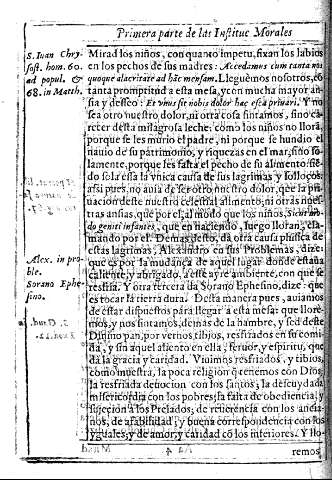 Primera parte de las Instituc Morales
S. Iuan Chry-
sost. hom. 60.
ad popul. &
68. in Matth.
Mirad los niños, con quanto impetu, fixan los labios
en los pechos de sus madres: Accedamus cum tanta nos
quoque alacritate ad hãc mensam. Lleguemos nosotros, cõ
tanta promptitud a esta mesa, y con mucha mayor an-
sia y desseo: Et vnus sit nobis dolor hac esca priuari. Y no
sea otro nuestro dolor, ni otra cosa sintamos, sino ca-
recer desta milagrosa leche: como los niños no llorã,
porque se les murio el padre, ni porque se hundio el
nauio de su patrimonio, y riquezas en el mar, sino so-
lamente, porque les falta el pecho de su alimento: siẽ-
do sola esta la vnica causa de sus lagrimas y solloços
assi pues, no auia de ser otro nuestro dolor, que la pri-
uacion deste nuestro celestial alimento, ni otras nues-
tras ansias, que por el, al modo que los niños, Sicut
geniti infantes, que en naciendo, luego lloran,
mando por el. Demas desto, da otra causa phisica de
estas lagrimas, Alexandro en sus Problemas,
Alex. in pro-
ble.
Sorano Ephe-
sino.
que es por la mudança de aquel lugar donde estaua
caliente, y abrigado, a este ayre ambiente, con que se
resfria. Y otra tercera da Sorano Ephesino, dize: que
es tocar la tierra dura. Desta manera pues, auiamos
de estar dispuestos para llegar a esta mesa: que llore-
mos, y nos sintamos, demas de la hambre, y sed deste
Diuino pan, por vernos tibios, resfriados en su comi-
da, y sin aquel aliento en ella; feruor, y espiritu, que
dà la gracia y caridad. Viuimos resfriados, y tibios,
como muestra, la poca religion q̃ tenemos con Dios,
la resfriada deuocion con los santos; la descuydada
misericordia con los pobres; la falta de obediencia, y
sujecion a los Prelados; de reuerencia con los ancia-
nos, de afabilidad, y buena correspondencia con los
yguales; y de amor, y caridad cõ los inferiores. Y llo-
remos